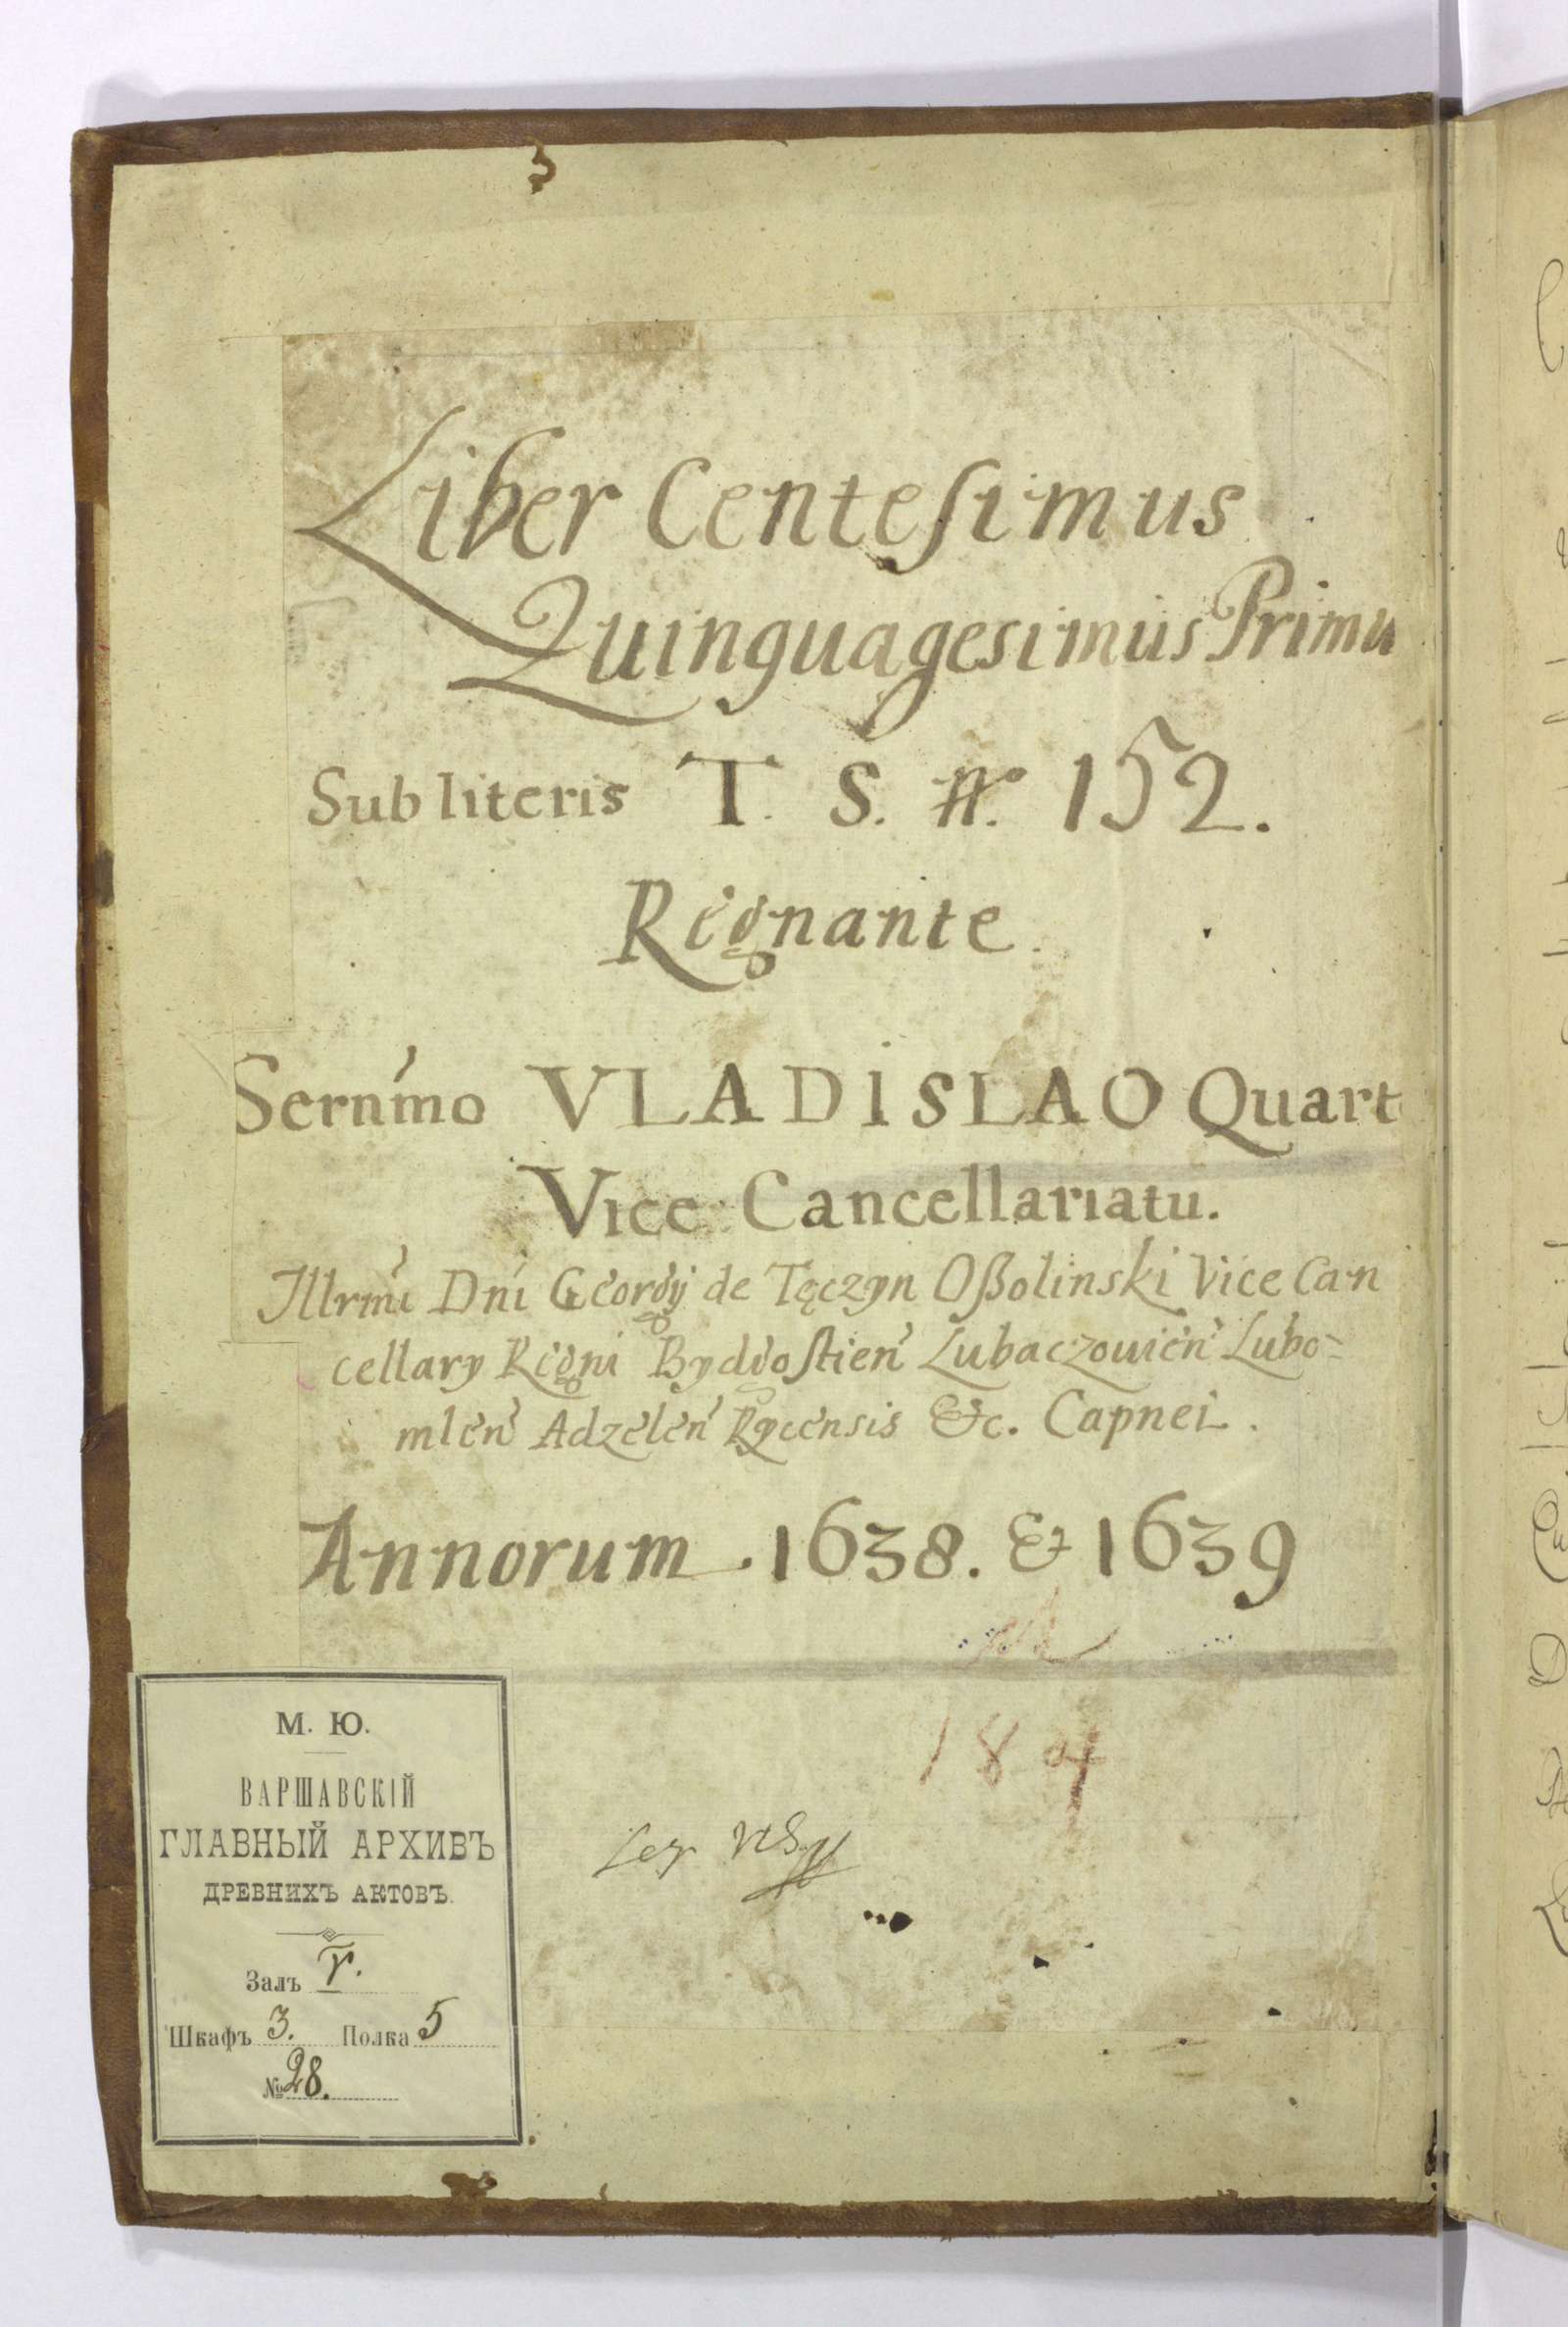 Liber Centesimus
Quinquagesimus Primu
Sub literis T. S. N. 152.
Regnante.
Serńmo VLADISLAO Quart
Vice Cancellariatu.
Illrmi Dni Georgij de Tęczyn Oßolinski Vice Can
cellary Regni Bydgostien Lubaczowien Lubo-
mlen Adzelen Rycensis &c. Capnei.
Annorum. 1638. & 1639
184
М. Ю.
ВАРШАВСКІЙ
ГЛАВНЫЙ АРХИВЪ
ДРЕВНИХЪ АКТОВЪ.
Залъ V.
Шкафъ 3. Полка 5
№ 28.